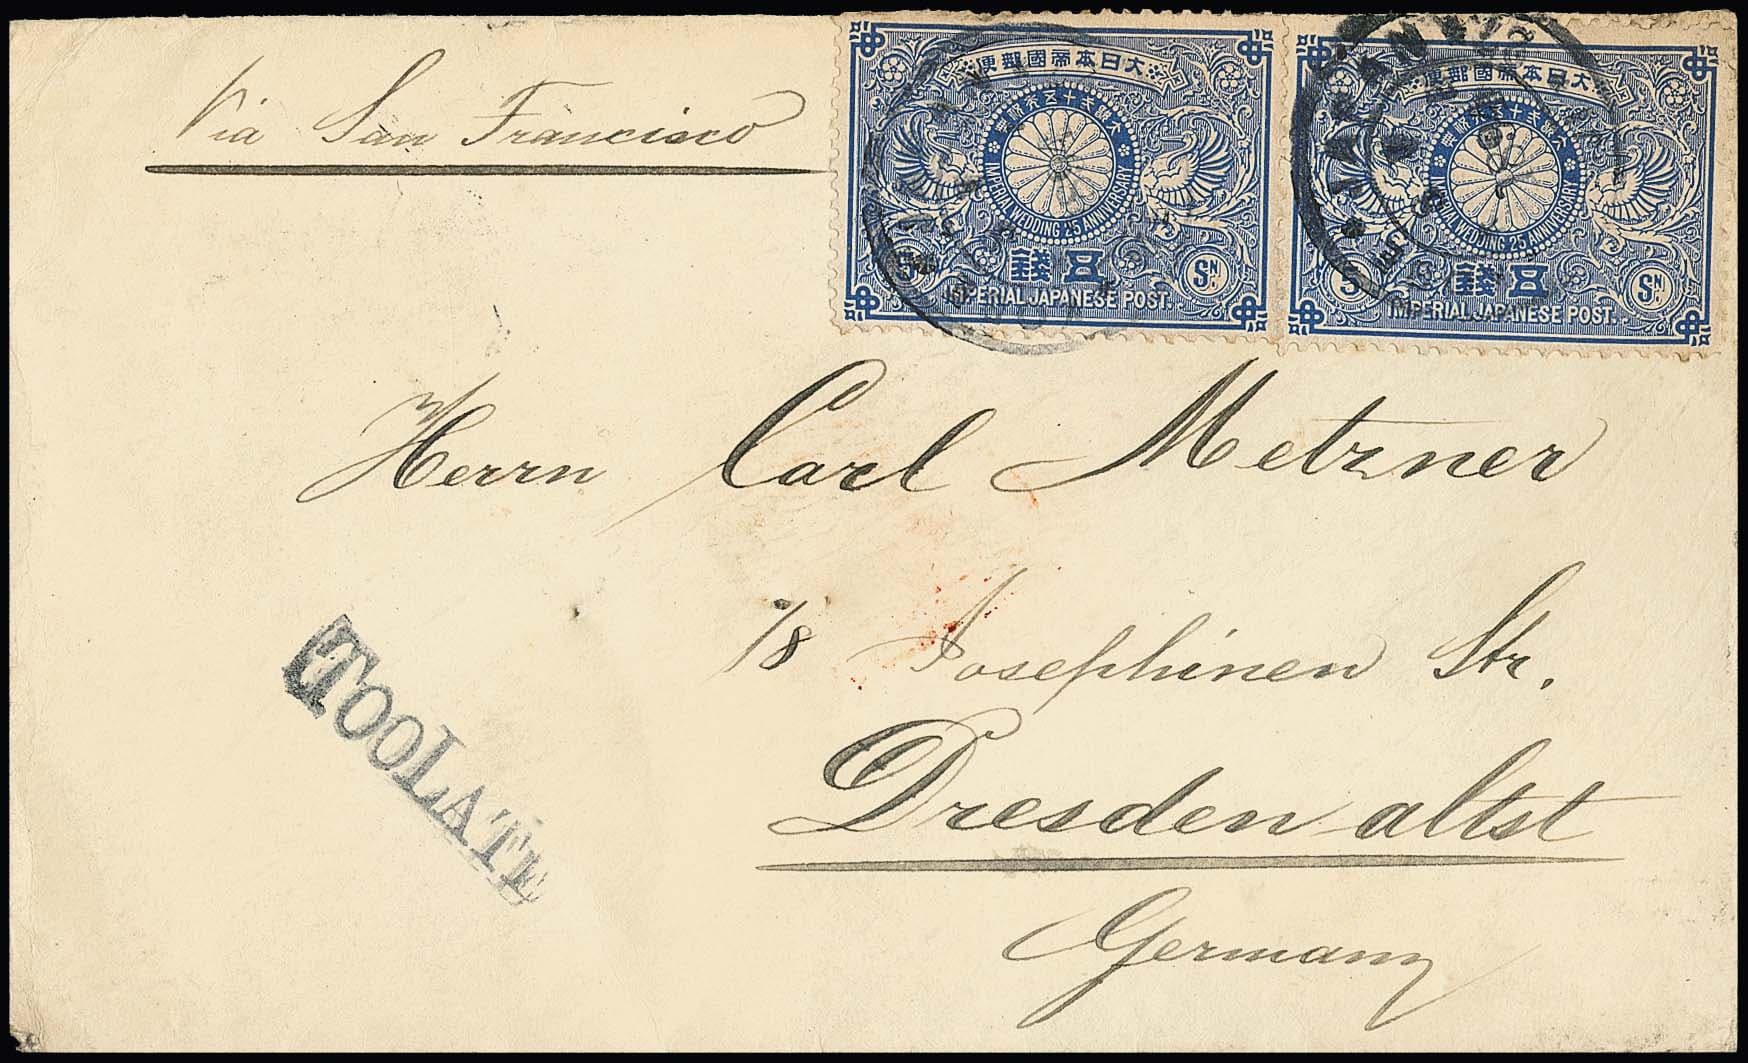 Via San Francisco
大日本帝國郵便
大婚祝典二十五年
IMPERIAL WEDDING 25 ANNIVERSARY
5
五錢
Sⁿ
IMPERIAL JAPANESE POST.
大日本帝國郵便
IMPERIAL WEDDING 25 ANNIVERSARY
5
五錢
Sⁿ
IMPERIAL JAPANESE POST.
JAPAN
Herrn Carl Metzner
1/8 Josephinen Str.
TOO LATE
Dresden altst
Germany